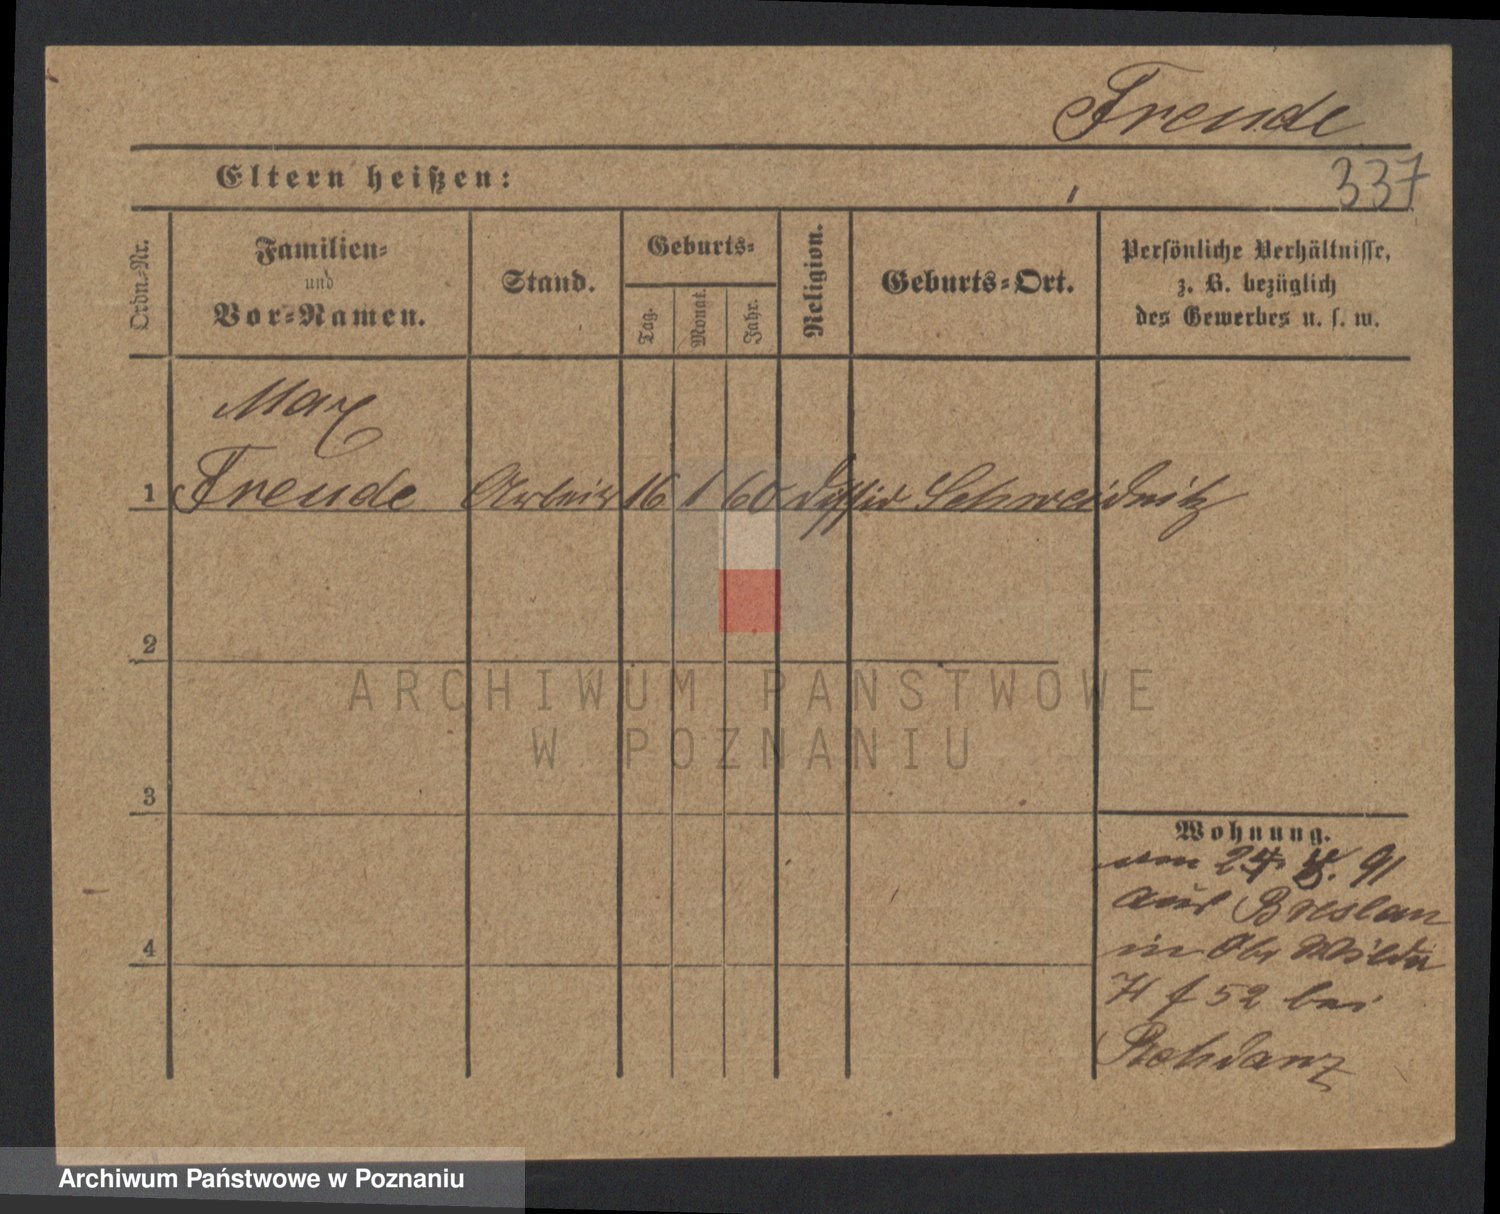 Freude
Eltern heißen:
337
Ordn.-Nr.
Familien-
und
Vor-Namen.
Stand.
Geburts-
Tag.
Monat.
Jahr.
Religion.
Geburts-Ort.
Persönliche Verhältnisse,
z. B. bezüglich
des Gewerbes u. s. w.
Max
1 Freude Arbeiter 16 1 60 Dissid Schweidnitz
2
3
4
Wohnung.
91
aus Breslau
in Obr Wilda
52 bei
ARCHIWUM PAŃSTWOWE
W POZNANIU
Archiwum Państwowe w Poznaniu